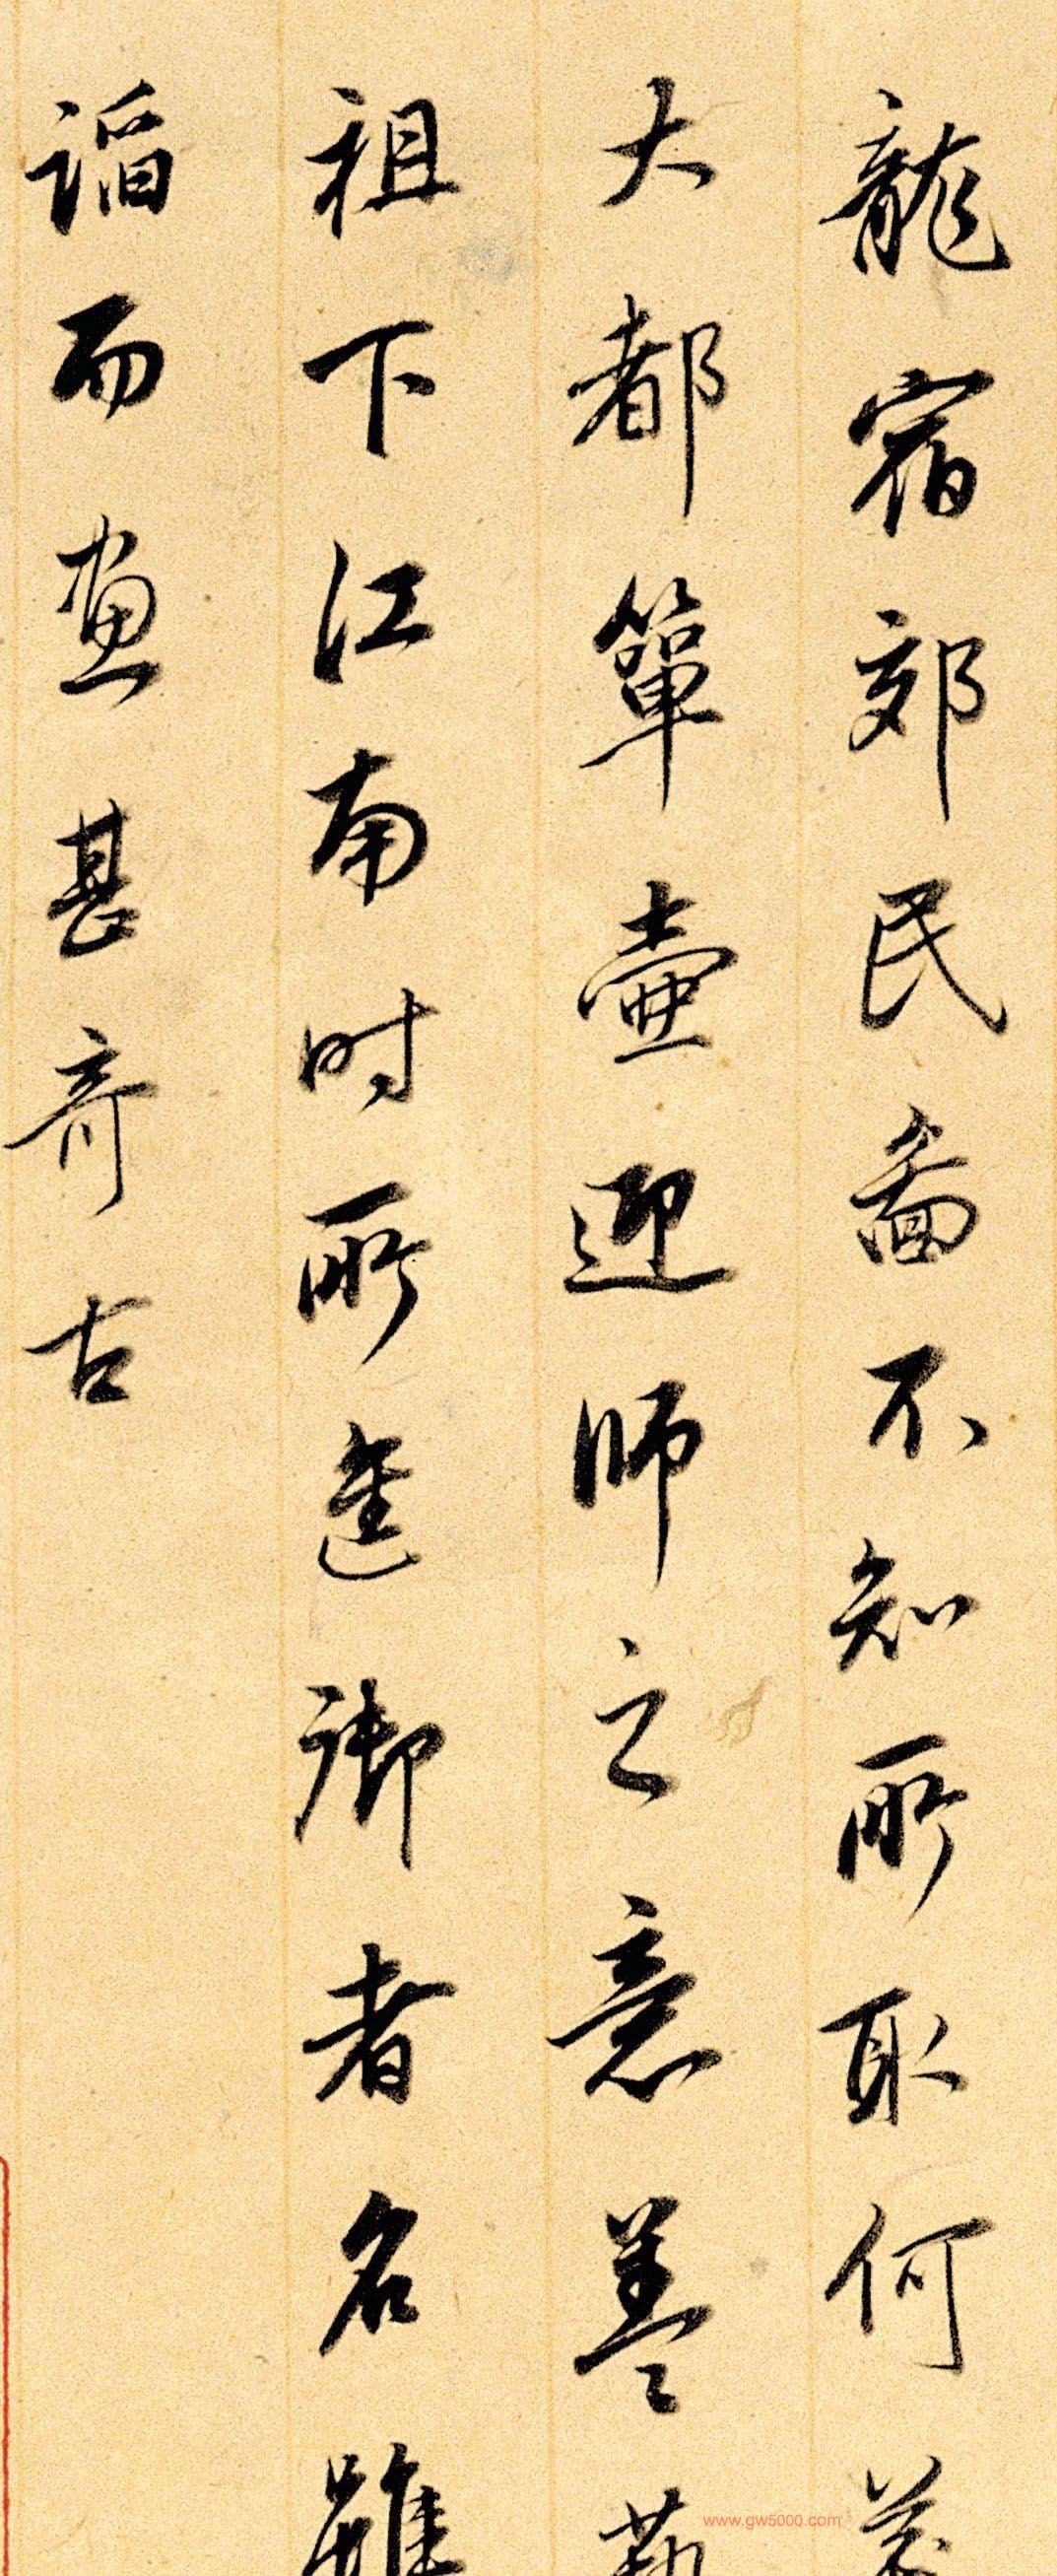 龍宿郊民啚不知所取何義
大都簞壺迎師之意蓋藝
祖下江南时所進御者名雖
謟而畫甚奇古
www.gw5000.com